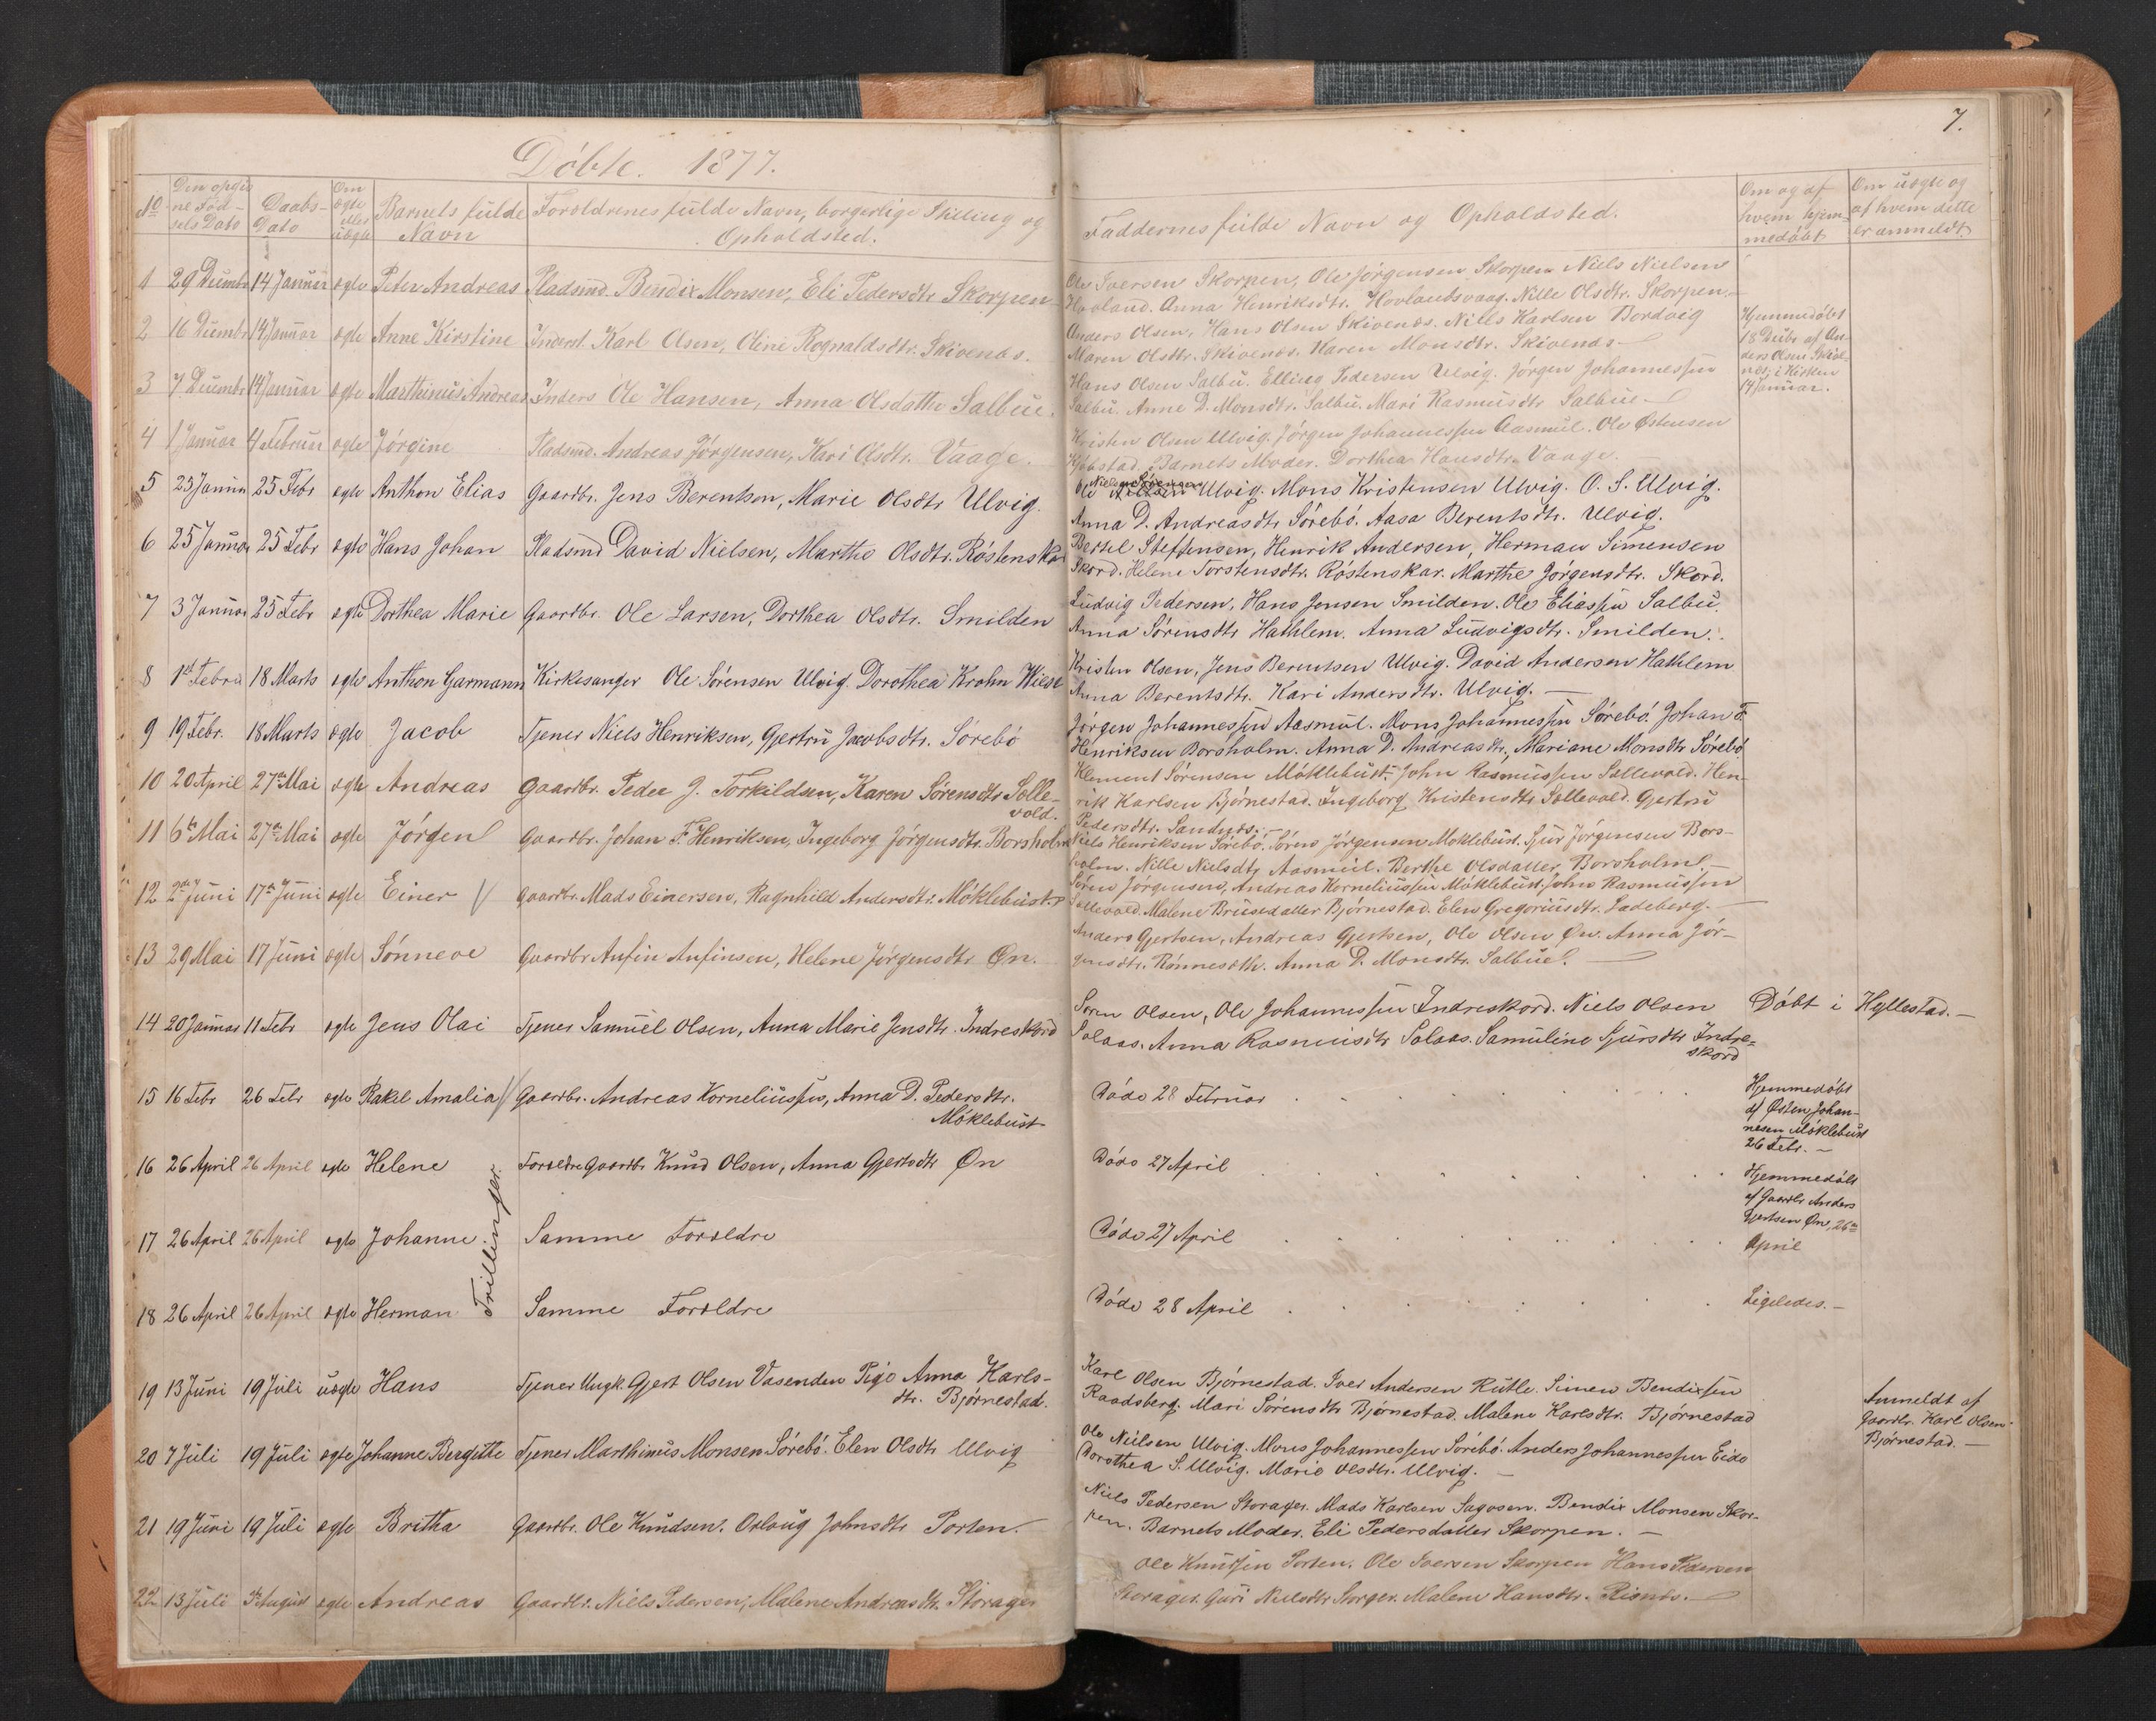 7.
Döbte. 1877.
No
Den opgiv
ne Föd-
sels Dato
Daabs-
Dato
Om
ægte
eller
uægte
Barnets fulde
Navn
Foroldrenes fulde Navn, borgerlige Stilling og
Opholdsted.
Faddernes fulde Navn og Opholdsted.
Om og af
hvem hjem-
medöbt
Om uægte og
af hvem dette
er anmeldt.
1 29 Dcembr 14 Januar ægte Peter Andreas Pladsmd. Bendix Monsen, Eli Pedersdtr Skorpen
Ole Iversen Skorpen, Ole Jörgensen Skorpen Niels Nielsen
Hovland. Anna Henriksdtr. Hovlandsvaag. Nille Olsdtr. Skorpen.
2 16 Dcembr 14 Januar ægte Anne Kirstine Inderst. Karl Olsen, Oline Rognaldsdtr. Skivenes.
Anders Olsen, Hans Olsen Skivenes. Nills Karlsen Bordvig
Maren Olsdtr. Skivenes. Karen Monsdtr. Skivenes
Hjemmedöbt
18 Debr af An-
ders Olsen Skive-
nes; i Kirken
14 Januar.
3 7 Dcembr 14 Januar ægte Marthinus Andreas Inders Ole Hansen, Anna Olsdatter Salbue.
Hans Olsen Salbu. Elling Pedersen Ulvig. Jörgen Johannessen
Salbu. Anne D. Monsdtr. Salbu. Mari Rasmusdtr Salbue
4 1 Januar 4 Februar ægte Jörgine Pladsmd. Andreas Jörgensen, Kari Olsdtr. Vaage.
Kristen Olsen Ulvig. Jörgen Johannessen Aasmul. Ole Östensen
Barnets Moder. Dorthea Hansdtr. Vaage.
5 25 Januar 25 Febr ægte Anthon Elias Gaardbr. Jens Berentsen, Marie Olsdtr Ulvig.
Ole Nielsen Ulvig. Mons Kristensen Ulvig. O. S. Ulvig.
Anna D. Andreasdtr Sörebö. Aasa Berentsdtr. Ulvig.
6 25 Januar 25 Febr ægte Hans Johan Pladsmd David Nielsen, Marthe Olsdtr. Röstenskar
Bertel Steffensen, Henrik Andersen, Herman Simensen
Skord. Helene Torstensdtr. Röstenskar. Marthe Jörgensdtr. Skord.
7 3 Januar 25 Febr ægte Dorthea Marie Gaardbr. Ole Larsen, Dorthea Olsdtr. Smilden
Ludvig Pedersen, Hans Jensen Smilden. Ole Eliassen Salbu.
Anna Sörensdtr Hathlem. Anna Ludvigsdtr. Smilden.
8 1st Febru 18 Marts ægte Anthon Garmann Kirkesanger Ole Sörensen Ulvig. Dorothea Krohn Wiese
Kristen Olsen, Jens Berentsen Ulvig. David Andersen Hathlem
Anna Berentsdtr. Kari Andersdtr. Ulvig.
9 19 Febr. 18 Marts ægte Jacob Tjener Niels Henriksen, Gjertru Jacobsdtr. Sörebö
Jörgen Johannessen Aasmul. Mons Johannessen Sörebö. Johan F.
Henriksen Borsholm. Anna D. Andreasdtr, Mariane Monsdtr Sörebö
10 20 April 27de Mai ægte Andreas Gaardbr. Peder J. Torkildsen, Karen Sörensdtr Solle-
vold.
Klement Sörensen Möklebust. John Rasmussen Sollevold. Hen-
rik Karlsen Björnestad. Ingeborg Kristensdtr Sollevold. Gjertru
Pedersdtr. Sandnes.
11 6te Mai 27de Mai ægte Jörgen Gaardbr. Johan F. Henriksen, Ingeborg Jörgensdtr. Borsholm
Niels Henriksen Sörebö. Sören Jörgensen Möklebust. Sjur Jörgensen Bors-
holm. Nille Nielsdtr Aasmul. Berthe Olsdatter Borsholm.
12 2den Juni 17de Juni ægte Einer // Gaardbr. Mads Einersen, Ragnhild Andersdtr. Möklebust.
Sören Jörgensen, Andreas Korneliussen Möklebust. John Rasmussen
Sollevold. Malene Brusedatter Björnestad. Elen Gregoriusdtr. Ladeberg.
13 29 Mai 17 Juni ægte Sönneve Gaardbr Anfin Anfinsen, Helene Jörgensdtr Øn.
Anders Gjertsen, Andreas Gjertsen, Ole Olsen Øn. Anna Jör-
gensdtr. Anna D. Monsdtr. Salbue.
14 20 Januar 11 Febr ægte Jens Olai Tjener Samuel Olsen, Anna Marie Jensdtr. Indreskord
Sören Olsen, Ole Johannessen Indreskord. Niels Olsen
Solaas. Anna Rasmusdtr Solaas. Samuline Sjursdtr Indre-
skord
Döbt i Hyllestad.
15 16 Febr 26 Febr ægte Rakel Amalia // Gaardbr. Andreas Korneliussen, Anna D. Pedersdtr.
Möklebust
Döde 28 Februar
Hjemmedöbt
af Østen Johan-
nesen Möklebust
26 Febr.
16 26 April 26 April ægte Helene Foræeldre Gaardbr Knud Olsen, Anna Gjertsdtr Øn
Döde 27 April
Hjemmedöbt
af Gaardbr Anders
Gjertsen Øn, 26de
April
Trillinger.
17 26 April 26 April ægte Johanne Samme Forældre
Döde 27 April
18 26 April 26 April ægte Herman Samme Forældre
Döde 28 April
Ligeledes.
19 13 Juni 19 Juli uægte Hans Tjener Ungk. Gjert Olsen Vasenden Pige Anna Karls-
dtr. Björnestad.
Karl Olsen Björnestad. Iver Andersen Rutle. Simen Bendixsen
Raadsberg. Mari Sörensdtr Björnestad. Malene Karlsdtr. Björnestad
Anmeldt af
Gaardbr. Karl Olsen
Björnestad.
20 7 Juli 19 Juli ægte Johanne Bergitte Tjener Marthinus Monsen Sörebö. Elen Olsdtr Ulvig
Ole Nielsen Ulvig. Mons Johannessen Sörebö. Anders Johannessen Eide
Dorothea S. Ulvig. Marie Olsdtr. Ulvig.
21 19 Juni 19 Juli ægte Britha Gaardbr. Ole Knudsen. Oslaug Johnsdtr Porten.
Niels Pedersen Storager. Mads Karlsen Sagosen. Bendix Monsen Skor-
pen. Barnets Moder. Eli Pedersdatter Skorpen.
22 13 Juli August ægte Andreas Gaardbr. Niels Pedersen, Malene Andreasdtr. Storager
Ole Knudsen Porten. Ole Iversen Skorpen Hans Pedersen
Storager. Guri Nielsdtr Storger. Malene Hansdtr. Risnes.